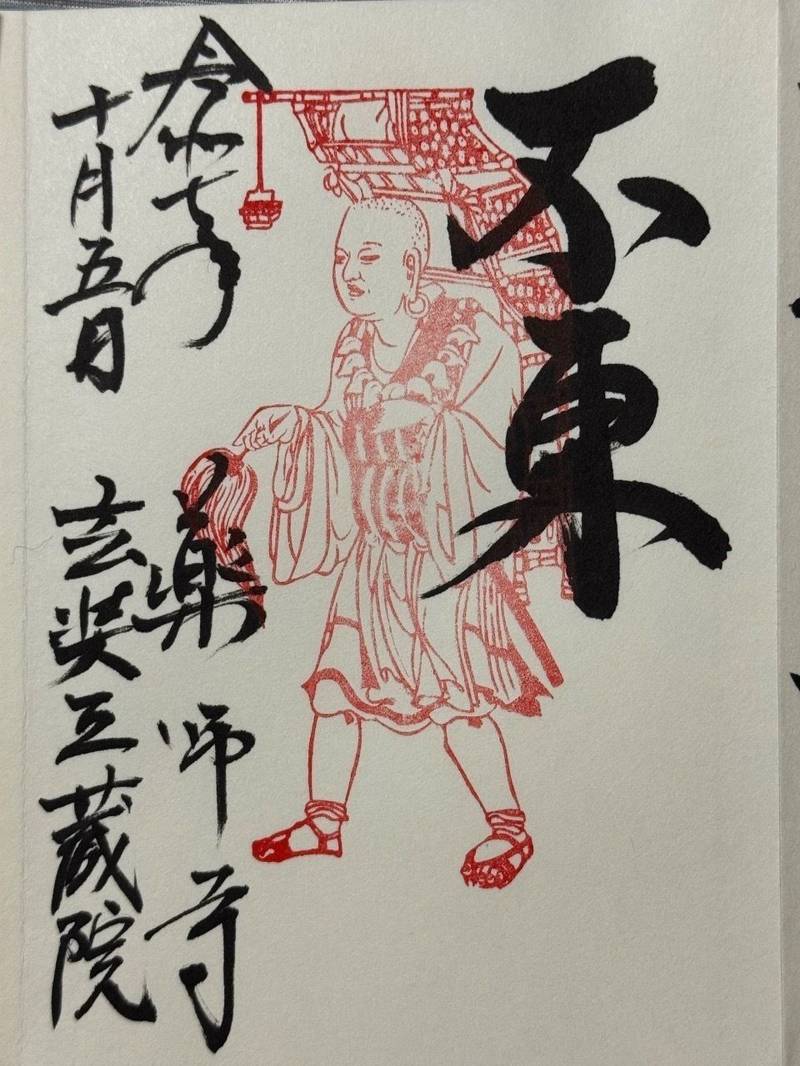 不東
令和七年
十月五日
薬師寺
玄奘三蔵院